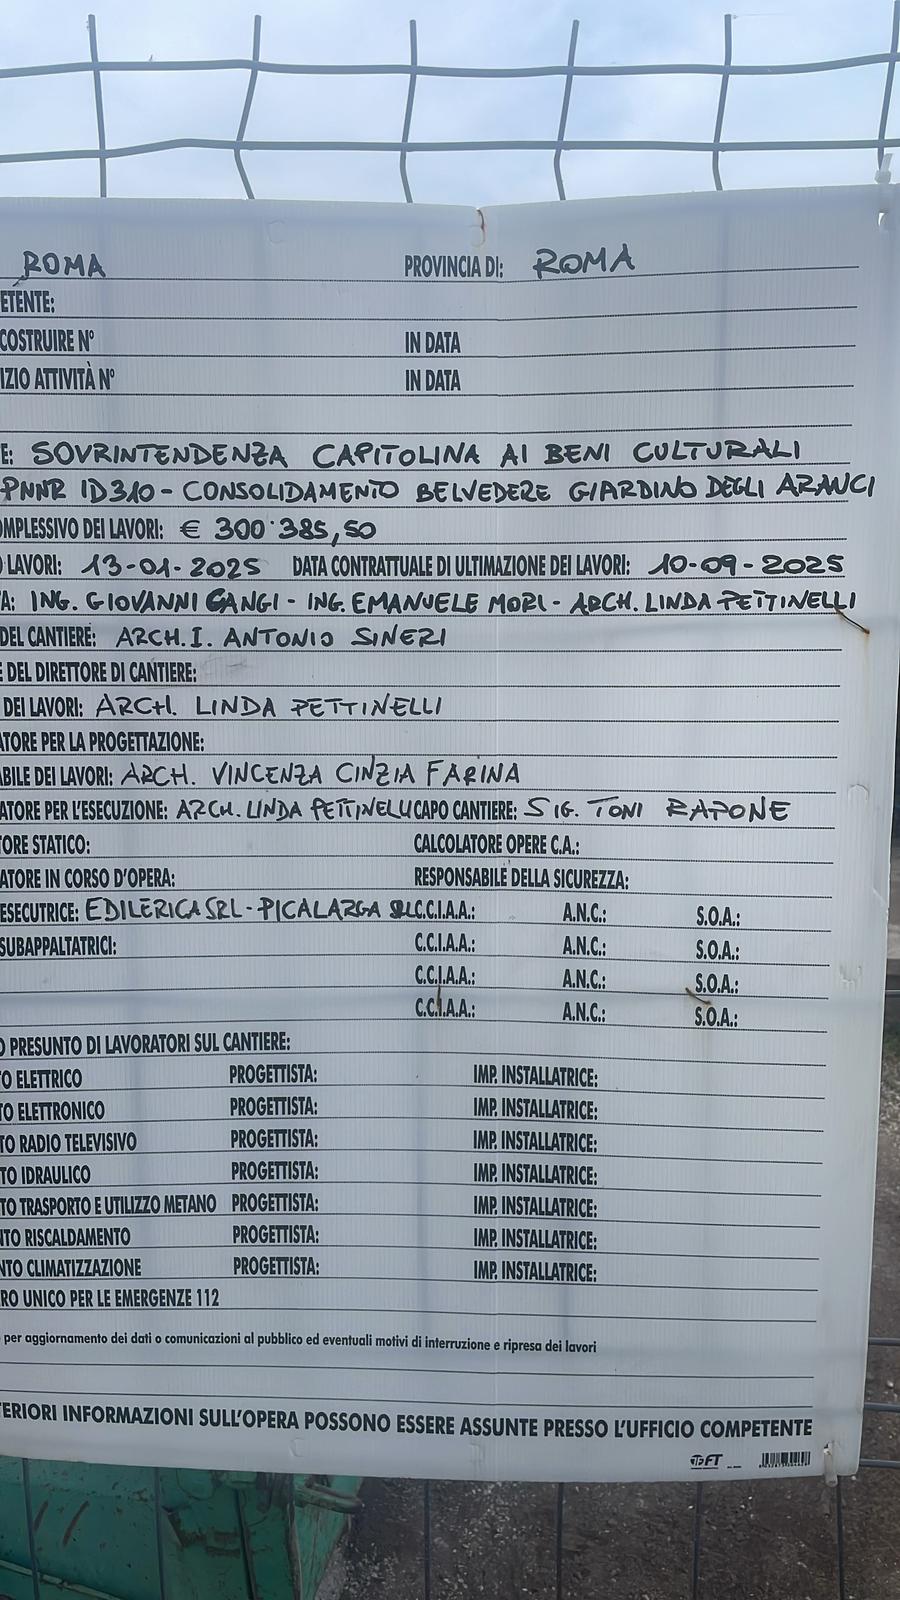 ROMA PROVINCIA DI: ROMA
ETENTE:
COSTRUIRE N° IN DATA
IZIO ATTIVITÀ N° IN DATA
E: SOVRINTENDENZA CAPITOLINA AI BENI CULTURALI
PNNR ID310 - CONSOLIDAMENTO BELVEDERE GIARDINO DEGLI ARANCI
OMPLESSIVO DEI LAVORI: € 300'385,50
O LAVORI: 13-01-2025 DATA CONTRATTUALE DI ULTIMAZIONE DEI LAVORI: 10-09-2025
A: ING. GIOVANNI CANGI - ING. EMANUELE MORI - ARCH. LINDA PETTINELLI
DEL CANTIERE: ARCH. I. ANTONIO SINERI
E DEL DIRETTORE DI CANTIERE:
DEI LAVORI: ARCH. LINDA PETTINELLI
ATORE PER LA PROGETTAZIONE:
ABILE DEI LAVORI: ARCH. VINCENZA CINZIA FARINA
ATORE PER L'ESECUZIONE: ARCH. LINDA PETTINELLI CAPO CANTIERE: SIG. TONI RAPONE
TORE STATICO: CALCOLATORE OPERE C.A.:
ATORE IN CORSO D'OPERA: RESPONSABILE DELLA SICUREZZA:
ESECUTRICE: EDILERICA SRL - PICALARGA SRL C.C.I.A.A.: A.N.C.: S.O.A.:
SUBAPPALTATRICI: C.C.I.A.A.: A.N.C.: S.O.A.:
C.C.I.A.A.: A.N.C.: S.O.A.:
C.C.I.A.A.: A.N.C.: S.O.A.:
O PRESUNTO DI LAVORATORI SUL CANTIERE:
TO ELETTRICO PROGETTISTA: IMP. INSTALLATRICE:
TO ELETTRONICO PROGETTISTA: IMP. INSTALLATRICE:
TO RADIO TELEVISIVO PROGETTISTA: IMP. INSTALLATRICE:
TO IDRAULICO PROGETTISTA: IMP. INSTALLATRICE:
TO TRASPORTO E UTILIZZO METANO PROGETTISTA: IMP. INSTALLATRICE:
NTO RISCALDAMENTO PROGETTISTA: IMP. INSTALLATRICE:
NTO CLIMATIZZAZIONE PROGETTISTA: IMP. INSTALLATRICE:
RO UNICO PER LE EMERGENZE 112
per aggiornamento dei dati o comunicazioni al pubblico ed eventuali motivi di interruzione e ripresa dei lavori
TERIORI INFORMAZIONI SULL'OPERA POSSONO ESSERE ASSUNTE PRESSO L'UFFICIO COMPETENTE
FT